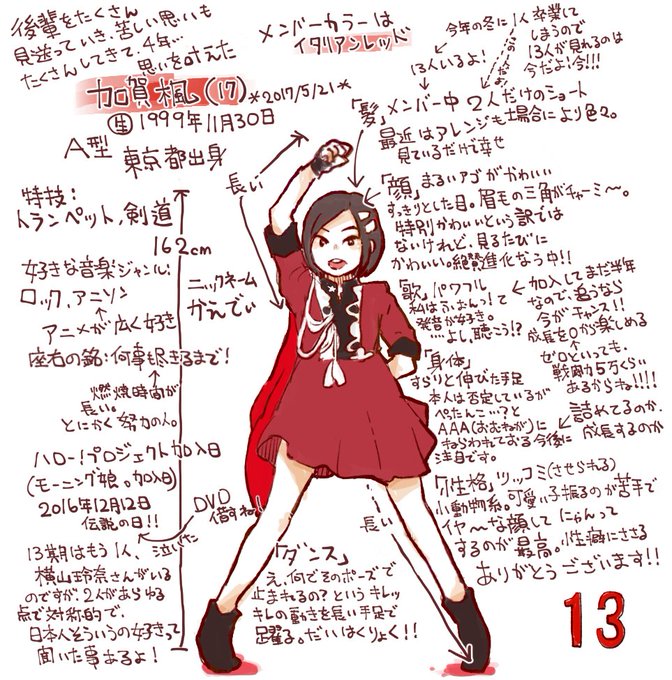 後輩をたくさん
見送っていき、苦しい思いも
たくさんしてきて、4年…
思いを叶えた
加賀楓(17)*2017/5/21*
生1999年11月30日
A型 東京都出身
メンバーカラーは
イタリアンレッド
今年の冬に1人卒業して
しまうので
13人が見れるのは
今だよ!今!!!
13人いるよ!
「髪」メンバー中2人だけのショート
最近はアレンジも場合により色々。
見ているだけで幸せ
「顔」まるいアゴがかわいい
すっきりとした目。眉毛の三角がチャーミ〜。
特別かわいいという訳では
ないけれど、見るたびに
かわいい。絶賛進化なう中!!
特技:
トランペット、剣道
162cm
長い
ニックネーム
かえでぃー
好きな音楽ジャンル:
ロック、アニソン
アニメが広く好き
座右の銘:何事も尽きるまで!
燃焼時間が
長い。
とにかく努力の人。
「歌」パワフル
私はふぉんっ!て
発音が好き。
……よし、聴こう!?
加入してまだ半年
なので、追うなら
今がチャンス!!
成長を0から楽しめる
ゼロといっても、
戦闘力5万くらい
あるからね!!!!
「身体」
すらりと伸びた手足
本人は否定しているが
ぺたんこ…?と
AAA(おおねがに)
ねらわれておる今後に
注目です。
詰めてるのか、
成長するのか
ハロー!プロジェクト加入日
(モーニング娘。加入日)
2016年12月12日
伝説の日!!
DVD
借すね!
13期はもう1人、泣いた
横山玲奈さんがいる
のですが、2人があらゆる
点で対称的で、
日本人そういうの好きって
聞いた事あるよ!
「性格」ツッコミ(させられる)
小動物系。可愛い子振るのが苦手で
イヤ〜な顔して にゃんって
するのが最高。性癖にささる
ありがとうございます!!
長い
「ダンス」
え、何でそのポーズで
止まれるの?というキレッ
キレの動きを長い手足で
踊る。だいはくりょく!!
13